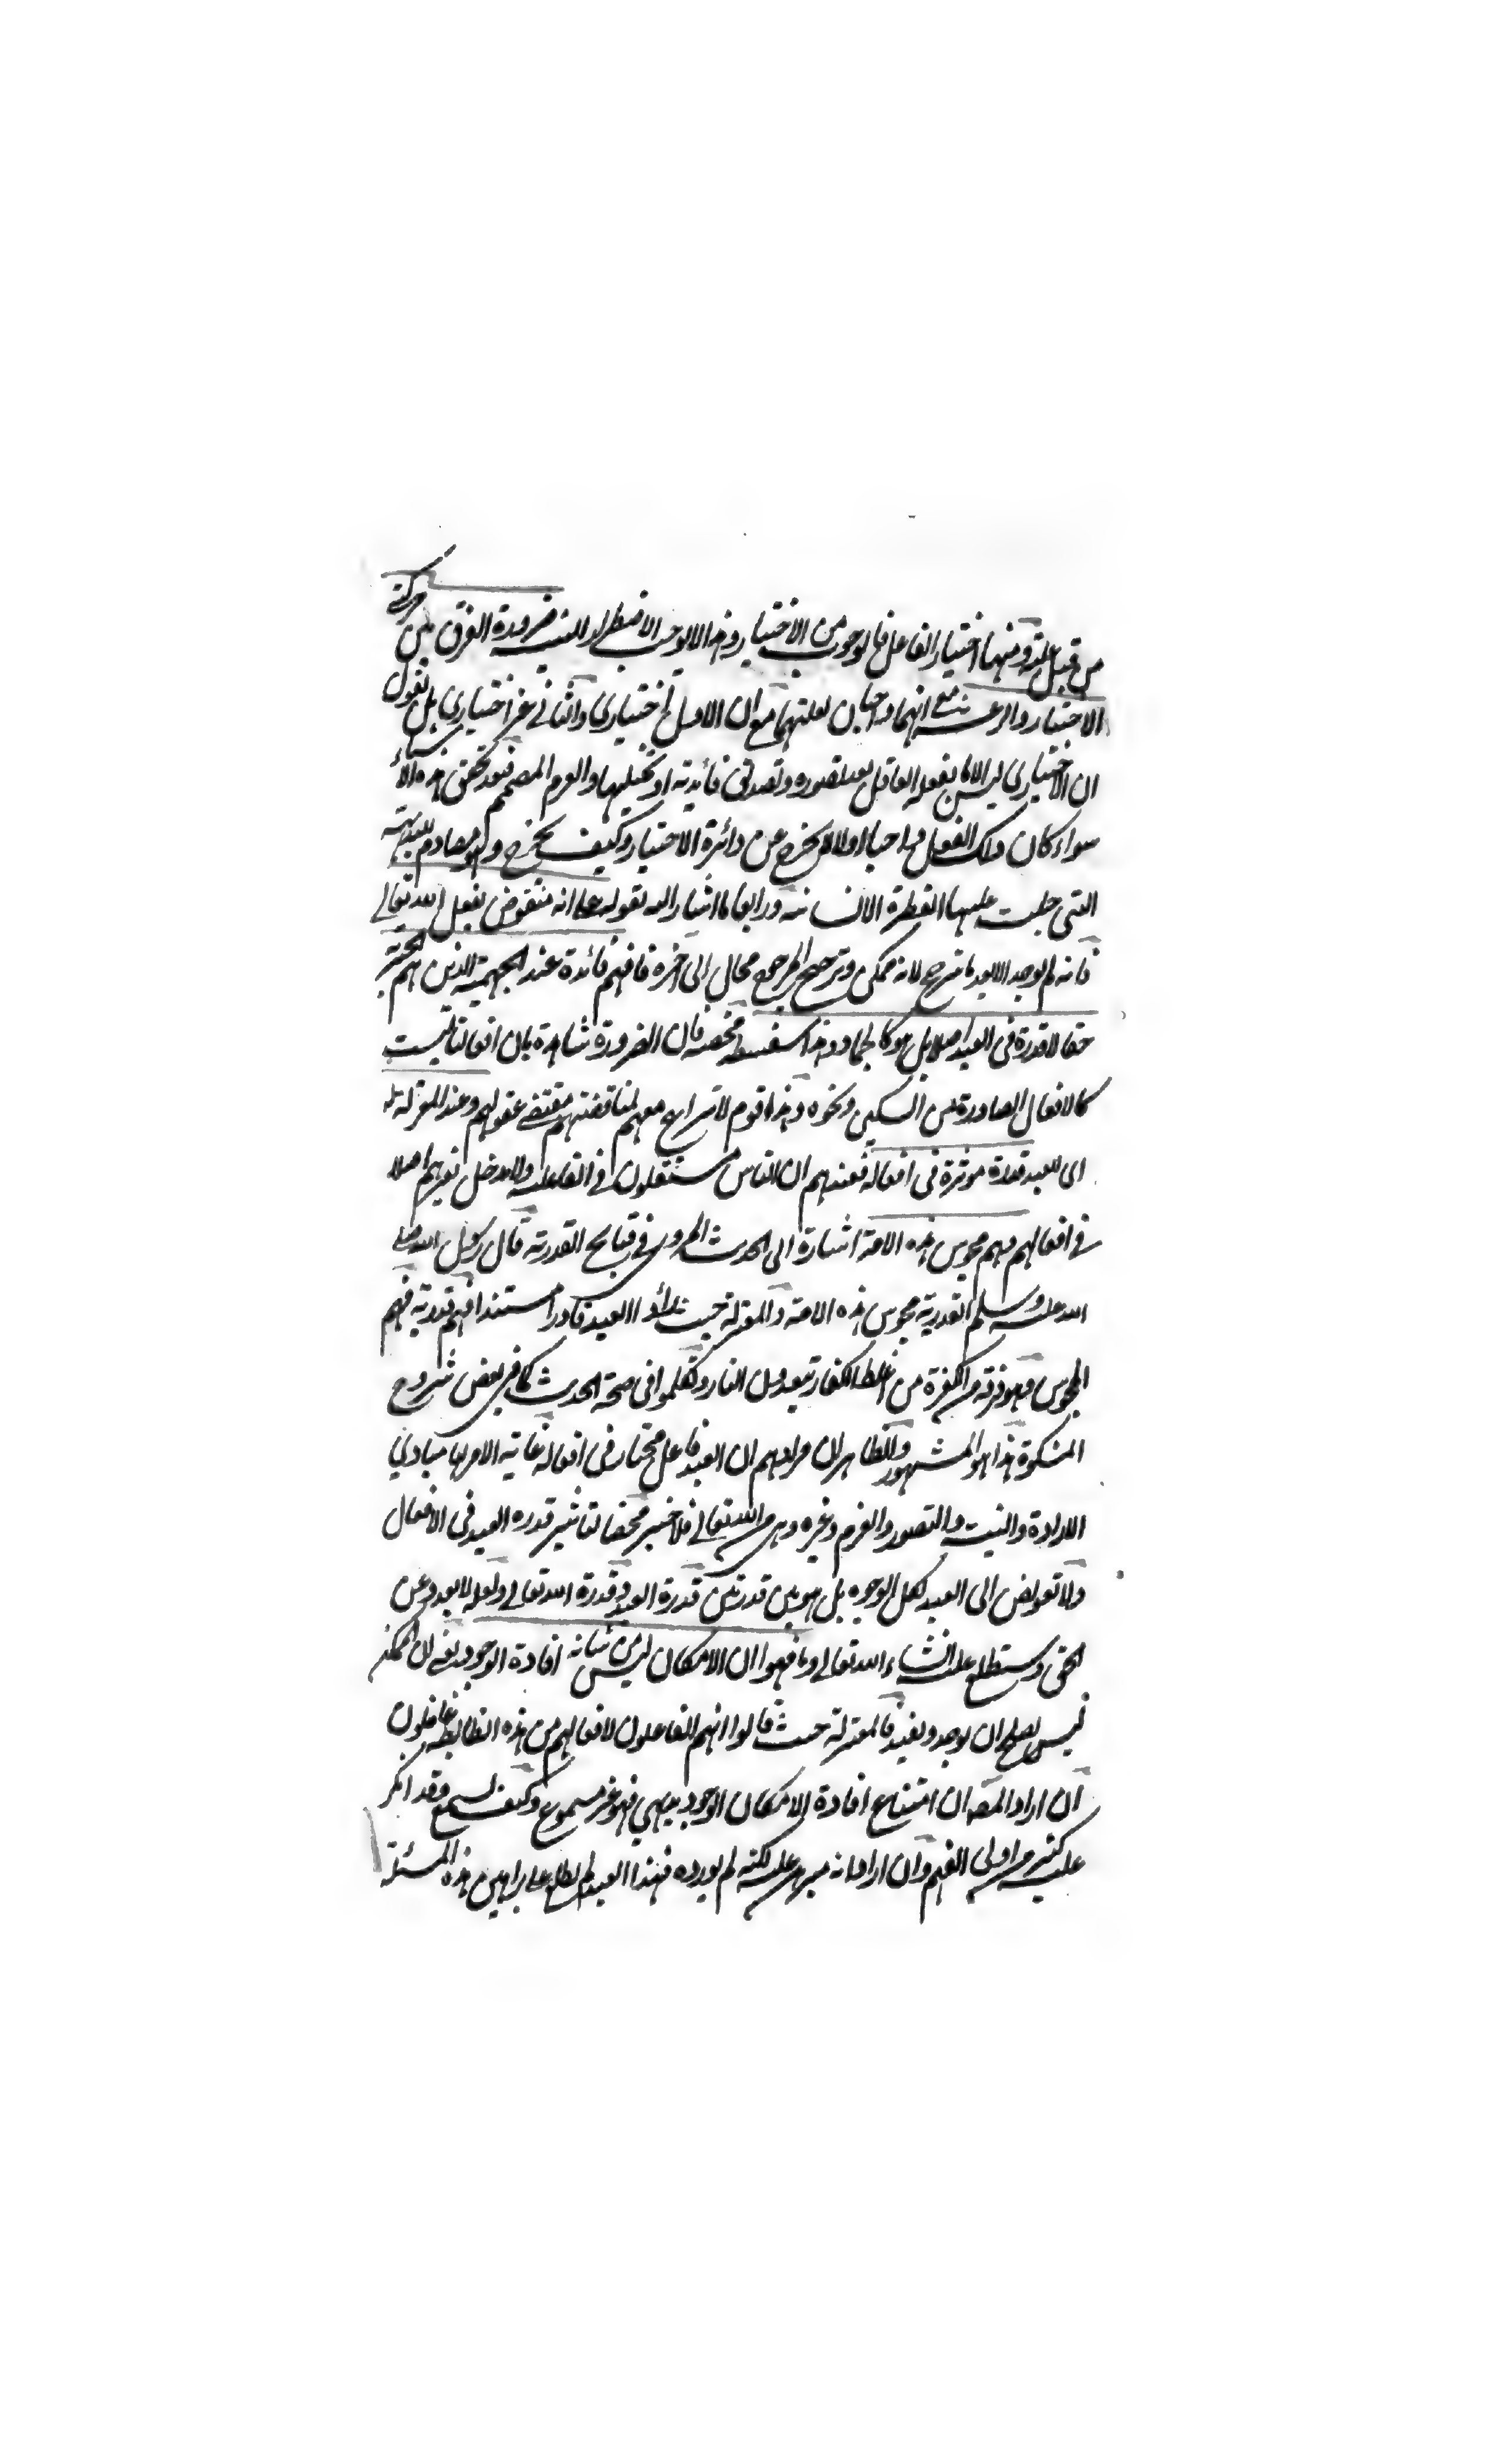 من قبل علته ومنها اختيار الفاعل فالوجوب من الاختيار وهذا لا يوجب الاضطرار للسيد ضرورة الفرق بين حركتي
الاختيار والرعشة مع انهما واجبان لعلتهما مع ان الاول اختياري والثاني غير اختياري بل نقول
ان الاختياري ليس الا ما يفعله الفاعل بعد تصوره وتصديق فائدته او تخيلها والعزم المصمم فبعد تحقق هذه الاشياء
سواء كان ذلك الفعل واجبا اولا لا يخرج عن دائرة الاختيار وكيف يخرج وهو مصادم للبديهة
التي جبلت عليها الفطرة الانسانية ورابعا ما اشار اليه بقوله على انه منقوض بفعل الله تعالى
فانه لم يوجد الا بعد ما ترجح لانه ممكن وترجيح المرجوح محال الى آخره فافهم فائدة عند الجهمية الذين هم الجبرية
حقا لا قدرة في العبد اصلا بل هو كالجماد وهذا سفسطة محضة فان الضرورة شاهدة بان افعالنا ليست
كالافعال الصادرة من السكين ونحوه وهذا قوم لا نزاع معهم لمناقضتهم مقتضى عقولهم وعند المعتزلة له
اى للعبد قدرة مؤثرة في افعاله فعندهم ان الناس مستقلون في الفاعلية ولا مدخل لغيرهم اصلا
في افعالهم وهم مجوس هذه الامة اشارة الى الحديث المروي في قبايح القدرية قال رسول الله صلى
الله عليه وسلم القدرية مجوس هذه الامة والمعتزلة حيث العبد قادرا مستندا فهم قدرية فهم
المجوس وهو فرقة من الكفرة من اغلظ الكفار يعبدون النار وتكلموا في صحة الحديث كما في بعض شروح
المشكوة هذا هو المشهور والظاهر ان مرادهم ان العبد فاعل مختار في افعاله غاية الامر لها مبادي
الارادة والنية والتصور والعزم وغيره وهي من الله تعالى فلا خير محضا لتاثير قدرة العبد في الافعال
ولا تفويض الى العبد لكل الوجوه بل هو بين قدرتين قدرة العبد وقدرة الله تعالى ولعله لا يعدو عن
الحق وستطلع عليه ان شاء الله تعالى وما فهموا ان الامكان ليس من شانه افادة الوجود يعني ان الممكن
ليس يصلح ان يوجد ويفيد فالمعتزلة حيث قالوا انهم الفاعلون لافعالهم من هذه الضابطة غافلون
ان اراد المصـ ان امتناع افادة الامكان الوجود بديهي فهو غير مسموع وكيف يسمع وقد انكر
عليه كثير من اولى الفهم وان اراد انه مبرهن عليه لكنه لم يورده فهذا العبد لم يطلع على براهين هذه المسئلة